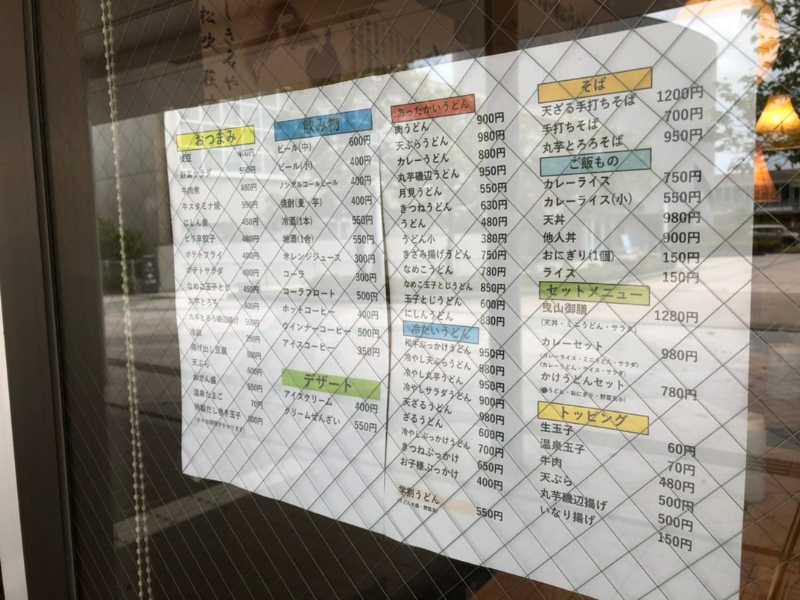 おつまみ
牛肉煮
牛スタミナ焼
にしん煮
ポテトフライ
ポテトサラダ
なめこ玉子とじ
揚げ出し豆腐
天ぷら
温泉たまご
飲み物
ビール(中) 600円
ビール(小) 400円
ノンアルコールビール 400円
焼酎(麦・芋) 400円
冷酒(1本) 550円
地酒(1合) 550円
オレンジジュース 300円
コーラ 300円
コーラフロート 500円
ホットコーヒー 400円
ウインナーコーヒー 500円
アイスコーヒー 350円
デザート
アイスクリーム 400円
クリームぜんざい 550円
あったかいうどん
肉うどん 900円
天ぷらうどん 980円
カレーうどん 800円
丸芋磯辺うどん 950円
月見うどん 550円
きつねうどん 630円
うどん 480円
うどん小 380円
きざみ揚げうどん 750円
なめこうどん 780円
なめこ玉子とじうどん 850円
玉子とじうどん 600円
にしんうどん 880円
冷たいうどん
和牛ぶっかけうどん 950円
冷やし天ぷらうどん 980円
冷やし丸芋うどん 950円
冷やしサラダうどん 950円
天ざるうどん 980円
ざるうどん 600円
冷やしぶっかけうどん 700円
きつねぶっかけ 650円
お子様ぶっかけ 400円
学割うどん 550円
そば
天ざる手打ちそば 1200円
手打ちそば 700円
丸芋とろろそば 950円
ご飯もの
カレーライス 750円
カレーライス(小) 550円
天丼 980円
他人丼 900円
おにぎり(1個) 150円
ライス 150円
セットメニュー
曳山御膳 1280円
(天丼・ミニうどん・サラダ)
カレーセット 980円
(カレーライス・ミニうどん・サラダ)
(カレーうどん・ライス・サラダ)
かけうどんセット 780円
トッピング
生玉子 60円
温泉玉子 70円
牛肉 480円
天ぷら 500円
丸芋磯辺揚げ 500円
いなり揚げ 150円